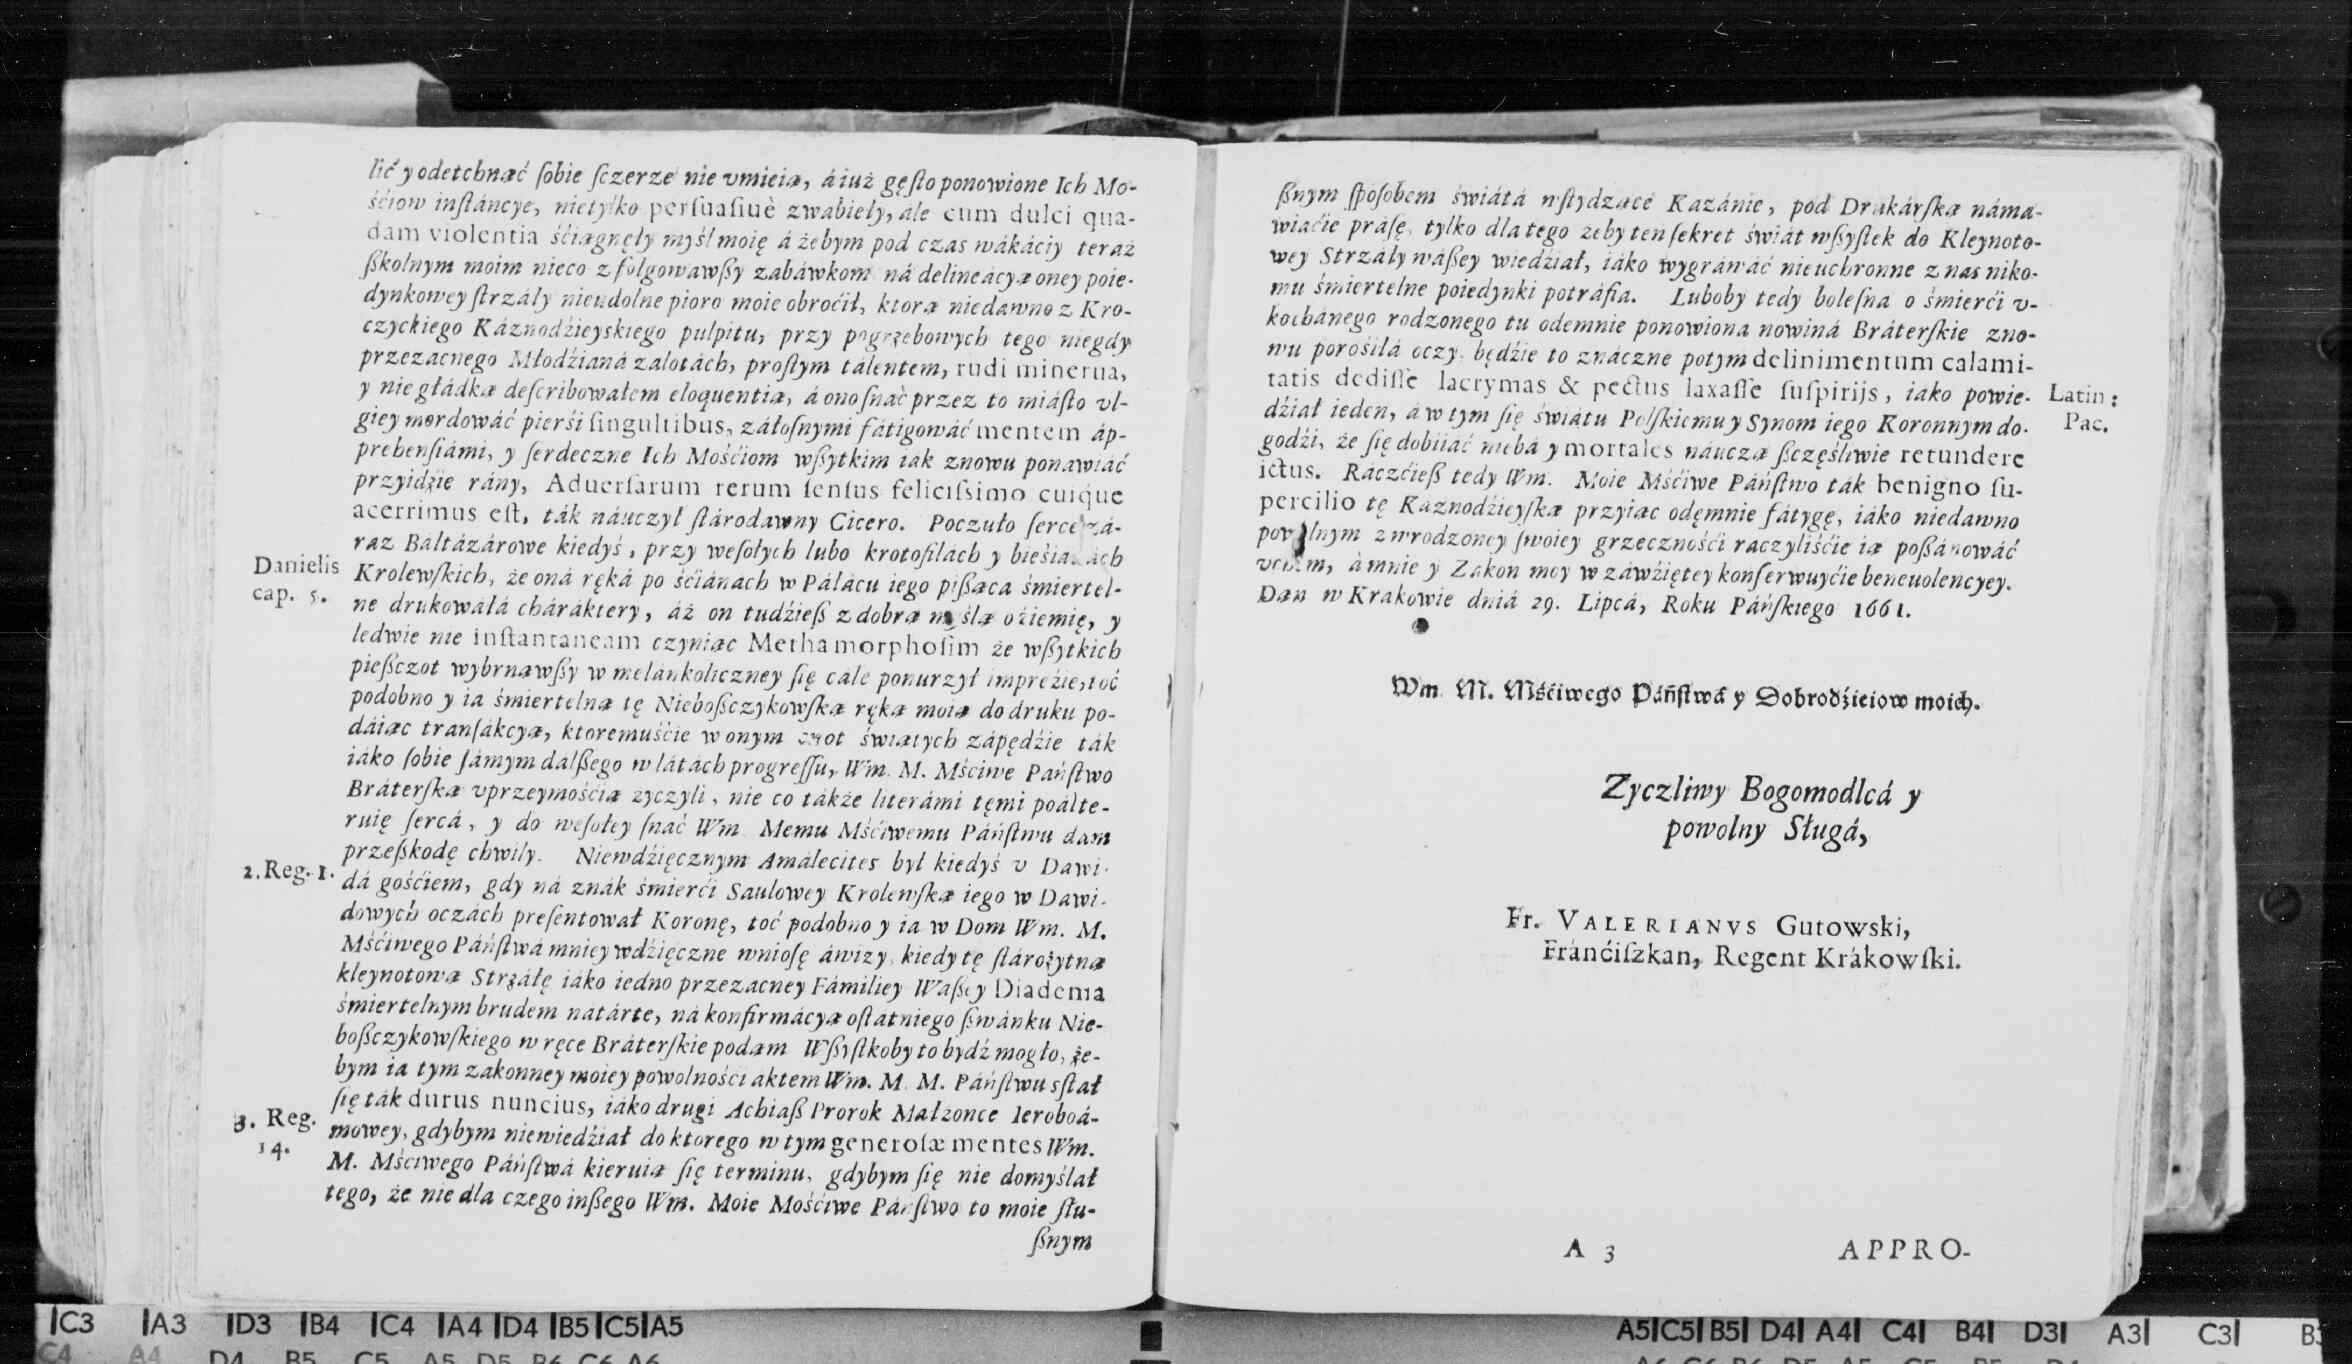 lić y odetchnąć ſobie ſczerze nie vmieią, á iuż gęſto ponowione Ich Mo-
śćiow inſtáncye, nietylko perſuaſiuè zwabiely, ale cum dulci qua-
dam violentia śćiągnęły myśl moię á żebym pod czas wákáciy teraz
ßkolnym moim nieco zfolgowawßy zabáwkom ná delineácyą oney poie-
dynkowey ſtrzáły nieudolne pioro moie obroćił, ktorą niedawno z Kro-
czyckiego Káznodźieyskiego pulpitu, przy pogrzebowych tego niegdy
przezacnego Młodźianá zalotách, proſtym tálentem, rudi minerua,
y nie głádką deſcribowałem eloquentią, á ono ſnać przez to miáſto vl-
giey mordowáć pierśi ſingultibus, záłoſnymi fátigowáć mentem áp-
prehenſiámi, y ſerdeczne Ich Mośćiom wßytkim iák znowu ponawiáć
przyidźie rány, Aduerſarum rerum ſenſus feliciſsimo cuique
acerrimus eſt, ták náuczył ſtárodawny Cicero. Poczuło ſerce zá-
raz Báltázárowe kiedyś, przy weſołych lubo krotofilách y bieśiadách
Danielis cap. 5.
Krolewſkich, że oná ręká po śćiánach w Páłácu iego pißąca śmiertel-
ne drukowáłá cháráktery, áż on tudźieß z dobrą myślą oźiemię, y
ledwie nie inſtantaneam czyniąc Methamorphoſim że wßytkich
pießczot wybrnąwßy w melánkoliczney ſię cále ponurzył impreźie, toć
podobno y ia śmiertelną tę Nieboßczykowſką ręką moią do druku po-
dáiąc tranſákcyą, ktoremuśćie w onym cnot świątych zápędźie ták
iáko ſobie ſámym dálßego w látách progreſſu, Wm. M. Mściwe Páńſtwo
Bráterſką vprzeymośćią życzyli, nie co tákże literámi tęmi poálte-
ruię ſercá, y do weſołey ſnać Wm. Memu Mśćiwemu Páńſtwu dam
przeßkodę chwily. Niewdźięcznym Amálecites był kiedyś v Dawi-
2. Reg. 1.
dá gośćiem, gdy ná znák śmierći Saulowey Krolewſką iego w Dawi-
dowych oczách preſentował Koronę, toć podobno y ia w Dom Wm. M.
Mśćiwego Páńſtwá mniey wdźięczne wnioſę áwizy, kiedy tę ſtárożytną
kleynotową Strzáłę iáko iedno przezacney Fámiliey Waßey Diadema
śmiertelnym brudem nátárte, ná konfirmácyą oſtatniego ßwánku Nie-
boßczykowſkiego w ręce Bráterſkie podam Wßyſtkoby to bydź mogło, że-
bym ia tym zakonney moiey powolnośći aktem Wm. M. M. Páńſtwu sſtał
ſię ták durus nuncius, iáko drugi Achiaß Prorok Małzonce Ieroboá-
3. Reg. 14.
mowey, gdybym niewiedźiał do ktorego w tym generoſæ mentes Wm.
M. Mśćiwego Páńſtwá kieruią ſię terminu, gdybym ſię nie domyślał
tego, że nie dla czego inßego Wm. Moie Mośćiwe Páńſtwo to moie ſłu-
ßnym
ßnym ſpoſobem świátá wſtydzące Kazánie, pod Drukárſką náma-
wiaćie práſę, tylko dla tego zeby ten ſekret świát wßyſtek do Kleynoto-
wey Strzáły wáßey wiedźiał, iáko wygráwáć nieuchronne z nas niko-
mu śmiertelne poiedynki potráfia. Luboby tedy boleſna o śmierći v-
kochánego rodzonego tu odemnie ponowiona nowiná Bráterſkie zno-
wu porośiłá oczy, będźie to znáczne potym delinimentum calami-
tatis dediſſe lacrymas & pectus laxaſſe ſuſpirijs, iako powie-
Latin: Pac.
dźiał ieden, á w tym ſię świátu Polſkiemu y Synom iego Koronnym do-
godźi, że ſię dobiiáć niebá y mortales náuczą ßczęśliwie retundere
ictus. Ráczćieß tedy Wm. Moie Mśćiwe Páńſtwo ták benigno ſu-
percilio tę Kaznodźieyſką przyiąc odęmnie fátygę, iáko niedawno
powolnym z wrodzoney ſwoiey grzecznośći raczyliśćie ią poßánowáć
vchem, á mnie y Zakon moy w záwźiętey konſerwuyćie beneuolencyey.
Dan w Krakowie dniá 29. Lipcá, Roku Páńſkiego 1661.
Wm. M. Mśćiwego Páńſtwá y Dobrodźieiow moich.
Zyczliwy Bogomodlcá y
powolny Sługá,
Fr. VALERIANVS Gutowski,
Fránćiſzkan, Regent Krákowſki.
A 3
APPRO-
C3 A3 D3 B4 C4 A4 D4 B5 C5 A5
A5 C5 B5 D4 A4 C4 B4 D3 A3 C3